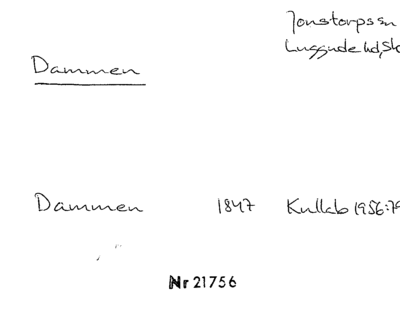 Jonstorps sn
Luggude hd, Sk
Dammen
Dammen 1847 Kullab 1956:79
Nr 21756